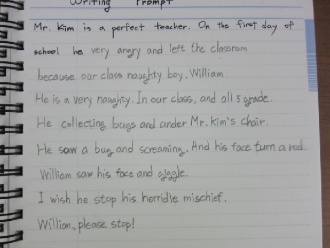 Writing Prompt
Mr. Kim is a perfect teacher. On the first day of
school he very angry and left the classroom
because our class naughty boy, William.
He is a very naughty. In our class, and all 5 grade.
He collecting bugs and under Mr. Kim's chair.
He saw a bug and screaming. And his face turn a red.
William saw his face and giggle.
I wish he stop his horrible mischief.
William, please stop!